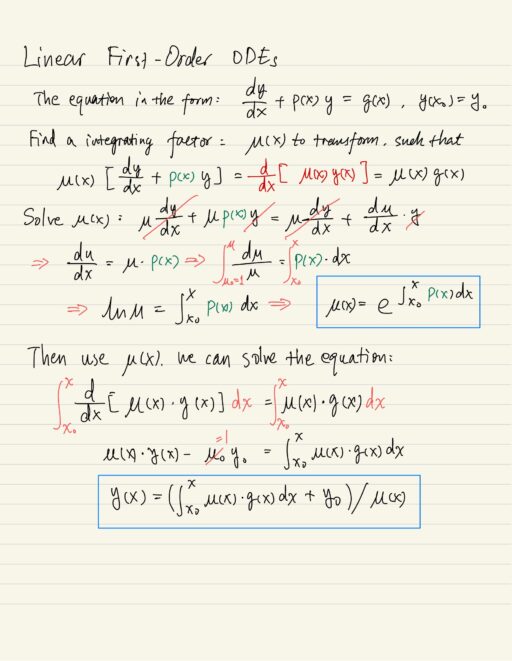 Linear First-Order ODEs
The equation in the form: dy/dx + p(x) y = g(x), y(x₀) = y₀
Find a integrating factor: μ(x) to transform, such that
μ(x) [dy/dx + p(x) y] = d/dx [μ(x) y(x)] = μ(x) g(x)
Solve μ(x): μ dy/dx + μ p(x) y = μ dy/dx + dμ/dx · y
⇒ dμ/dx = μ · p(x) ⇒ ∫_{μ₀=1}^{μ} dμ/μ = ∫_{x₀}^{x} p(x) · dx
⇒ ln μ = ∫_{x₀}^{x} p(x) dx ⇒ μ(x) = e^{∫_{x₀}^{x} p(x) dx}
Then use μ(x), we can solve the equation:
∫_{x₀}^{x} d/dx [μ(x) · y(x)] dx = ∫_{x₀}^{x} μ(x) · g(x) dx
=1
μ(x) · y(x) − μ₀ y₀ = ∫_{x₀}^{x} μ(x) · g(x) dx
y(x) = (∫_{x₀}^{x} μ(x) · g(x) dx + y₀) / μ(x)